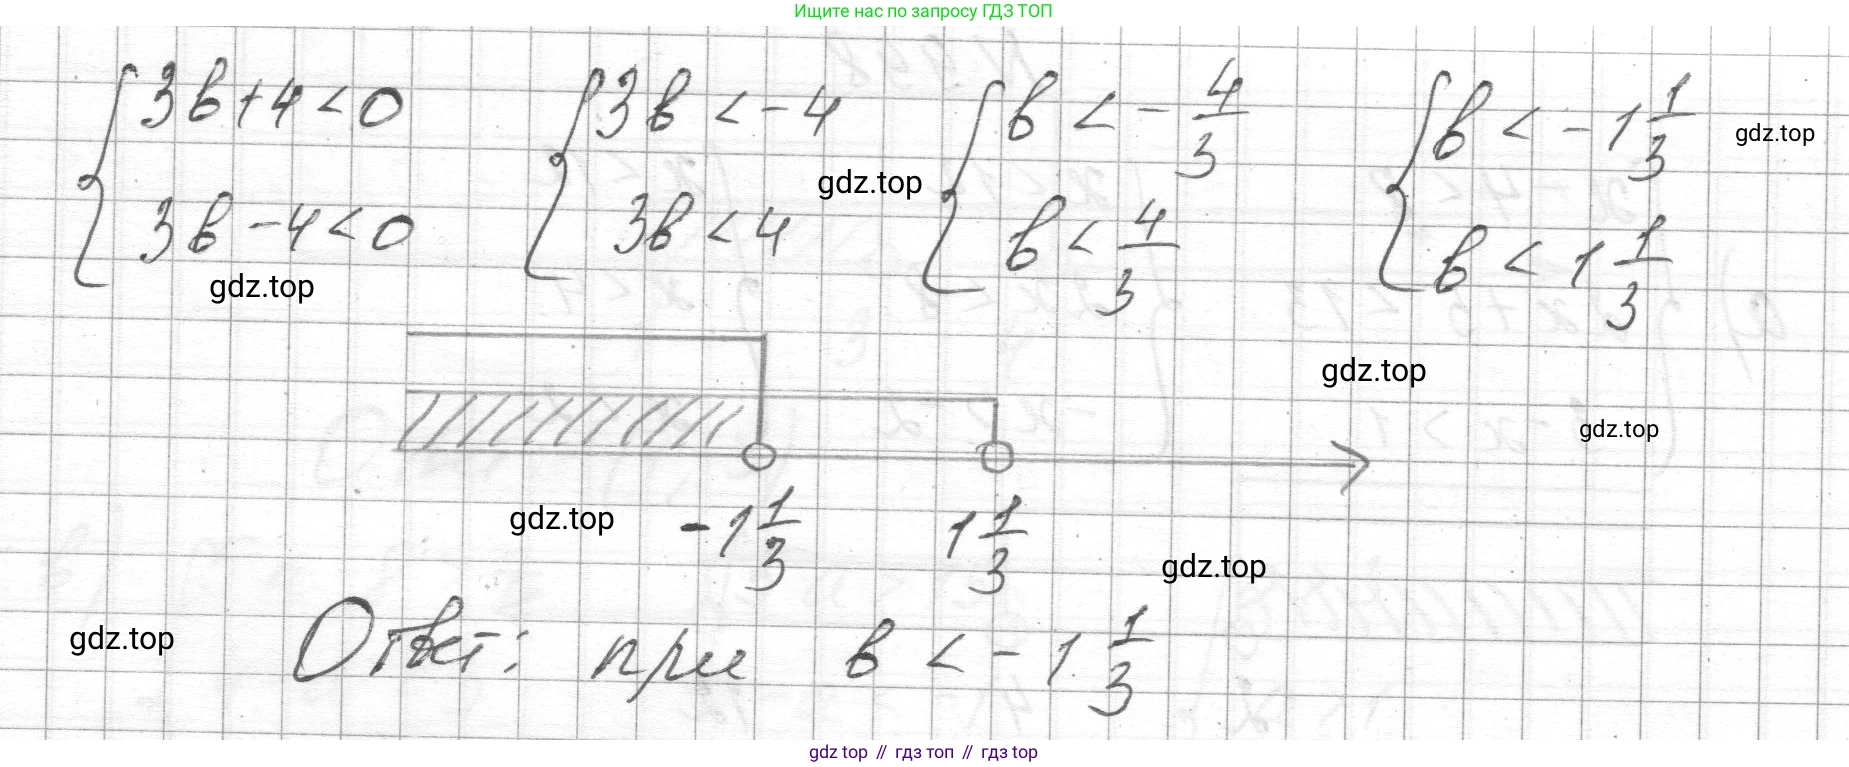 Ищите нас по запросу ГДЗ ТОП
{ 3в + 4 < 0   { 3в < -4   { в < - 4/3   { в < -1 1/3 gdz.top
gdz.top
3в - 4 < 0   3в < 4   в < 4/3   в < 1 1/3
gdz.top
gdz.top
gdz.top
gdz.top -1 1/3   1 1/3
gdz.top
gdz.top Ответ: при в < -1 1/3
gdz.top // гдз топ // гдз top